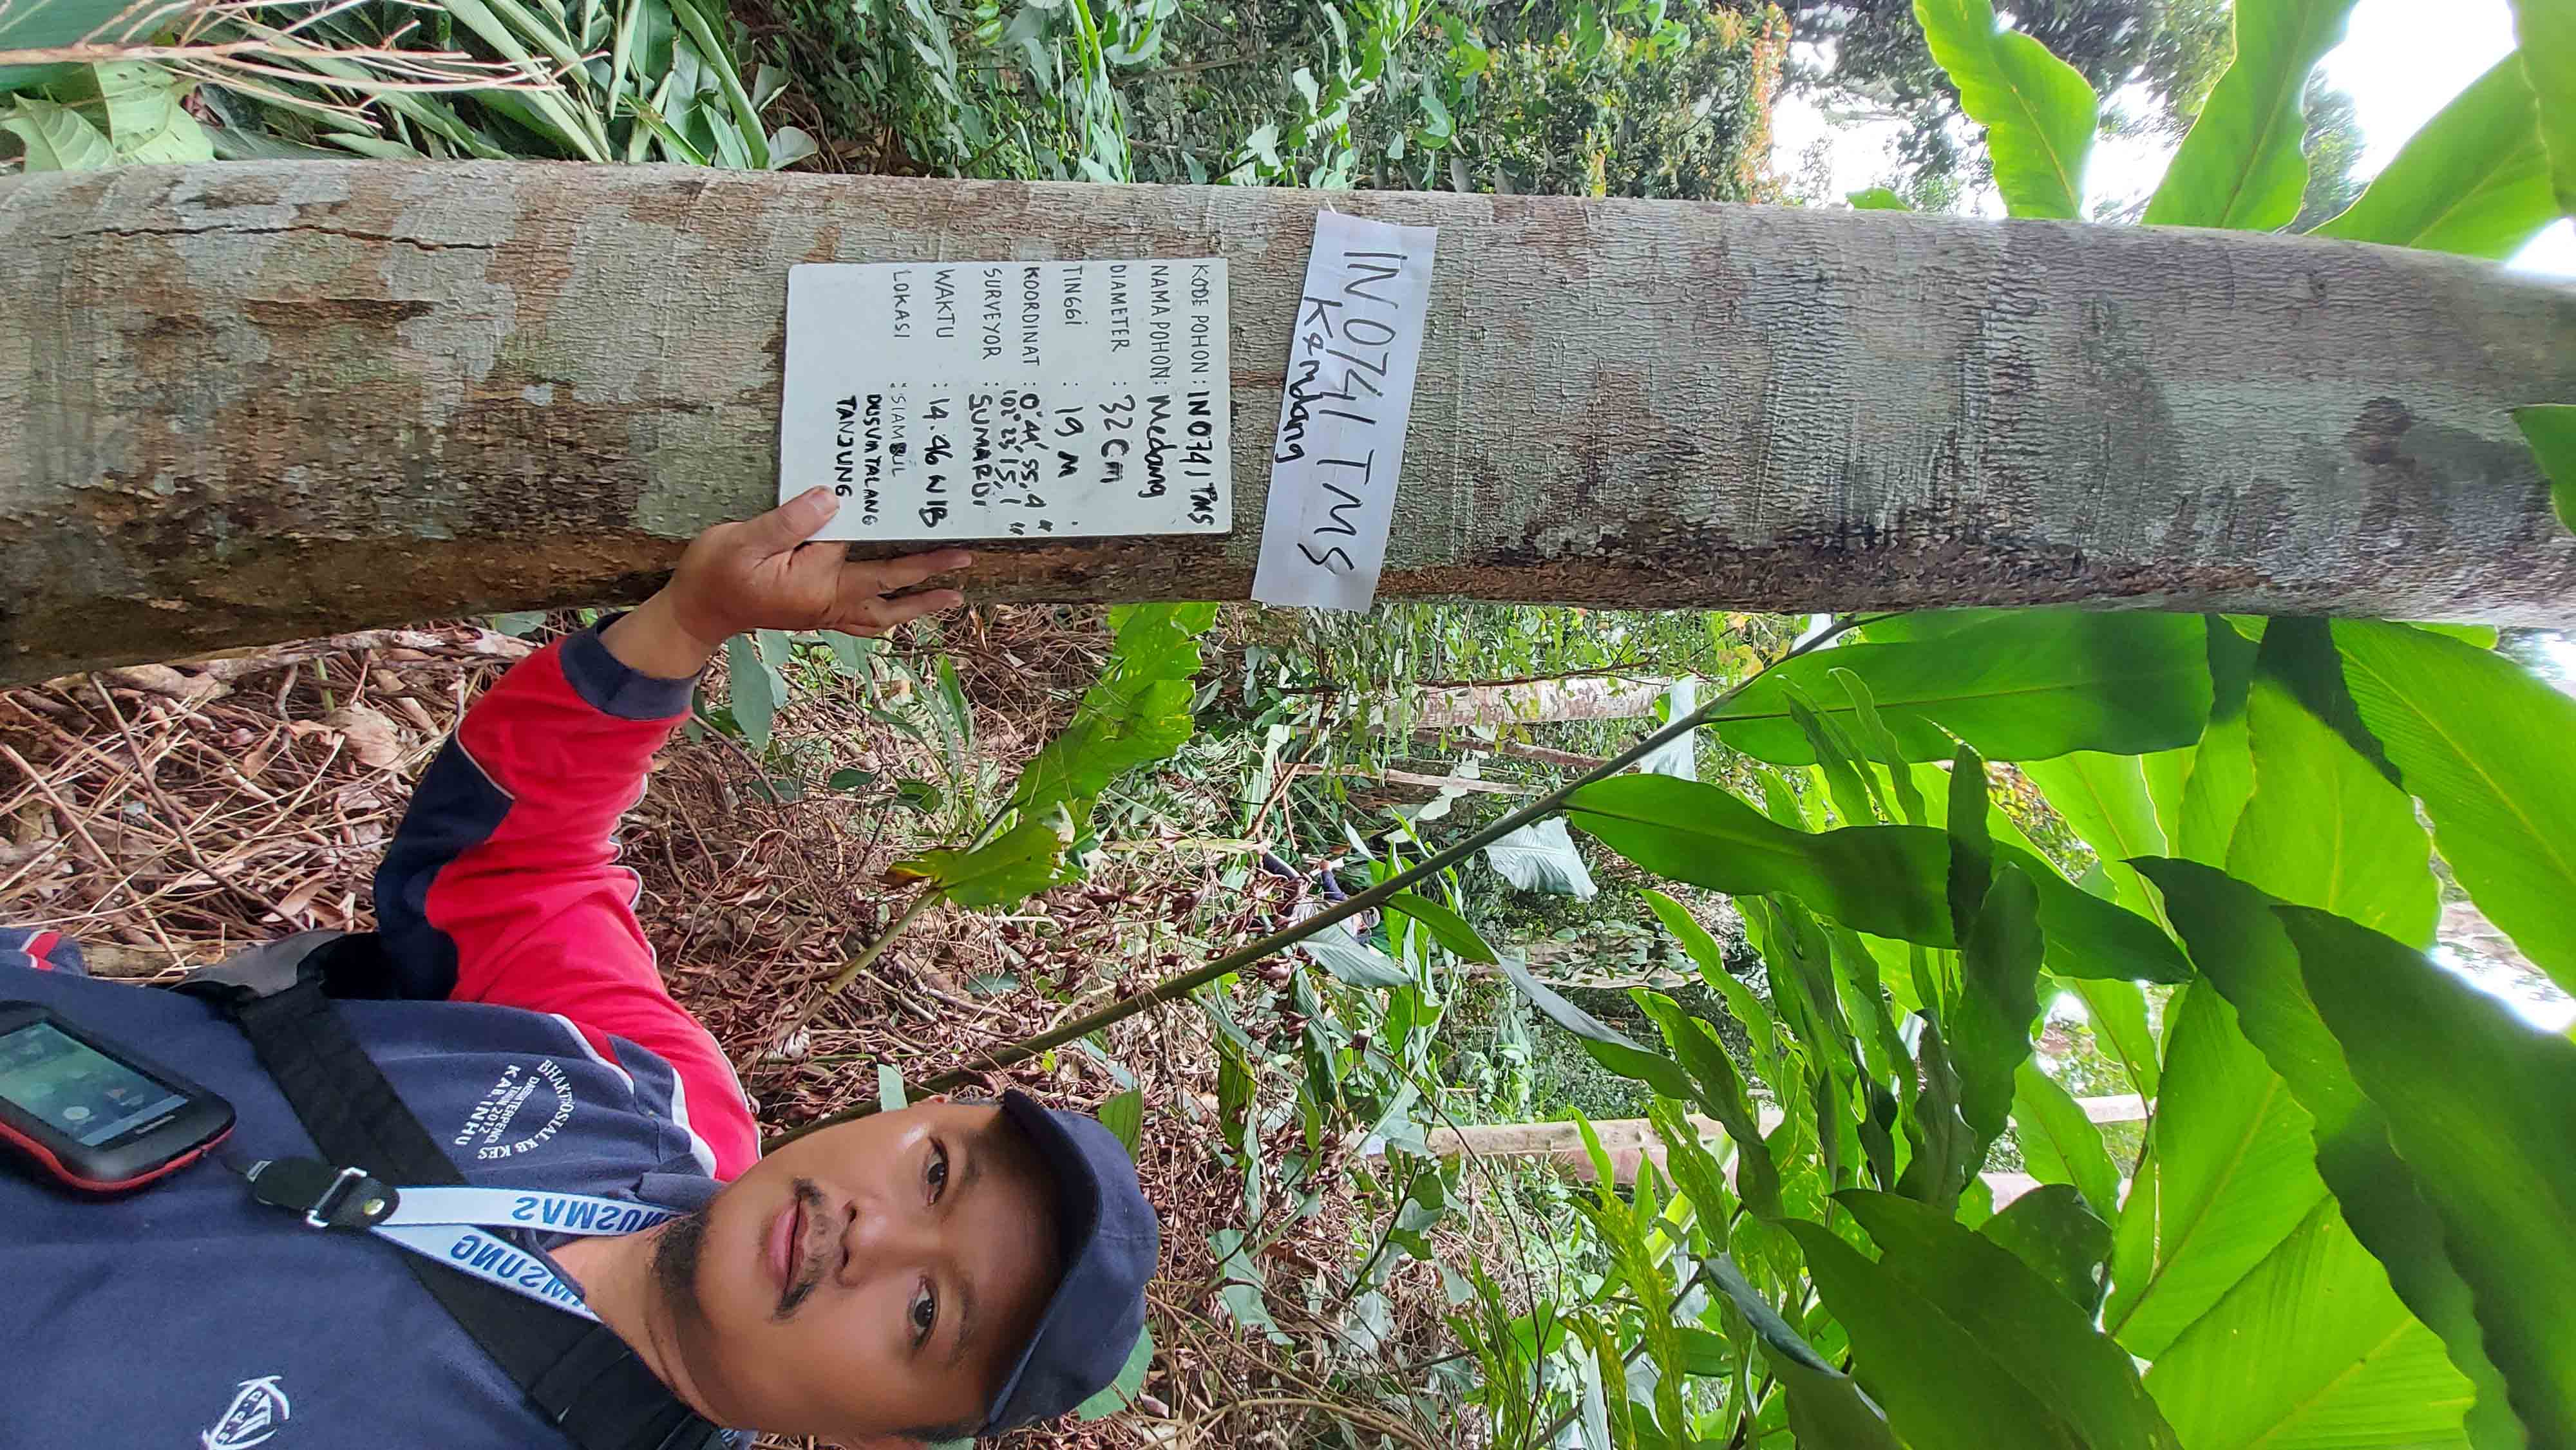 IN0741 TMS
Kemdang
KODE POHON : IN0741 TMS
NAMA POHON : Medang
DIAMETER : 32 Cm
TINGGI : 19 M
KOORDINAT : 0° 44' 55,4"
102° 23' 15,1"
SURVEYOR : SUMARDI
WAKTU : 14.46 WIB
LOKASI : SIAMBUL
DUSUN TALANG
TANJUNG
BHAKTI SOSIAL KB KES
DAERAH TERPENCIL
TAHUN 2012
KAB. INHU
SAMSUNG
SAMSUNG